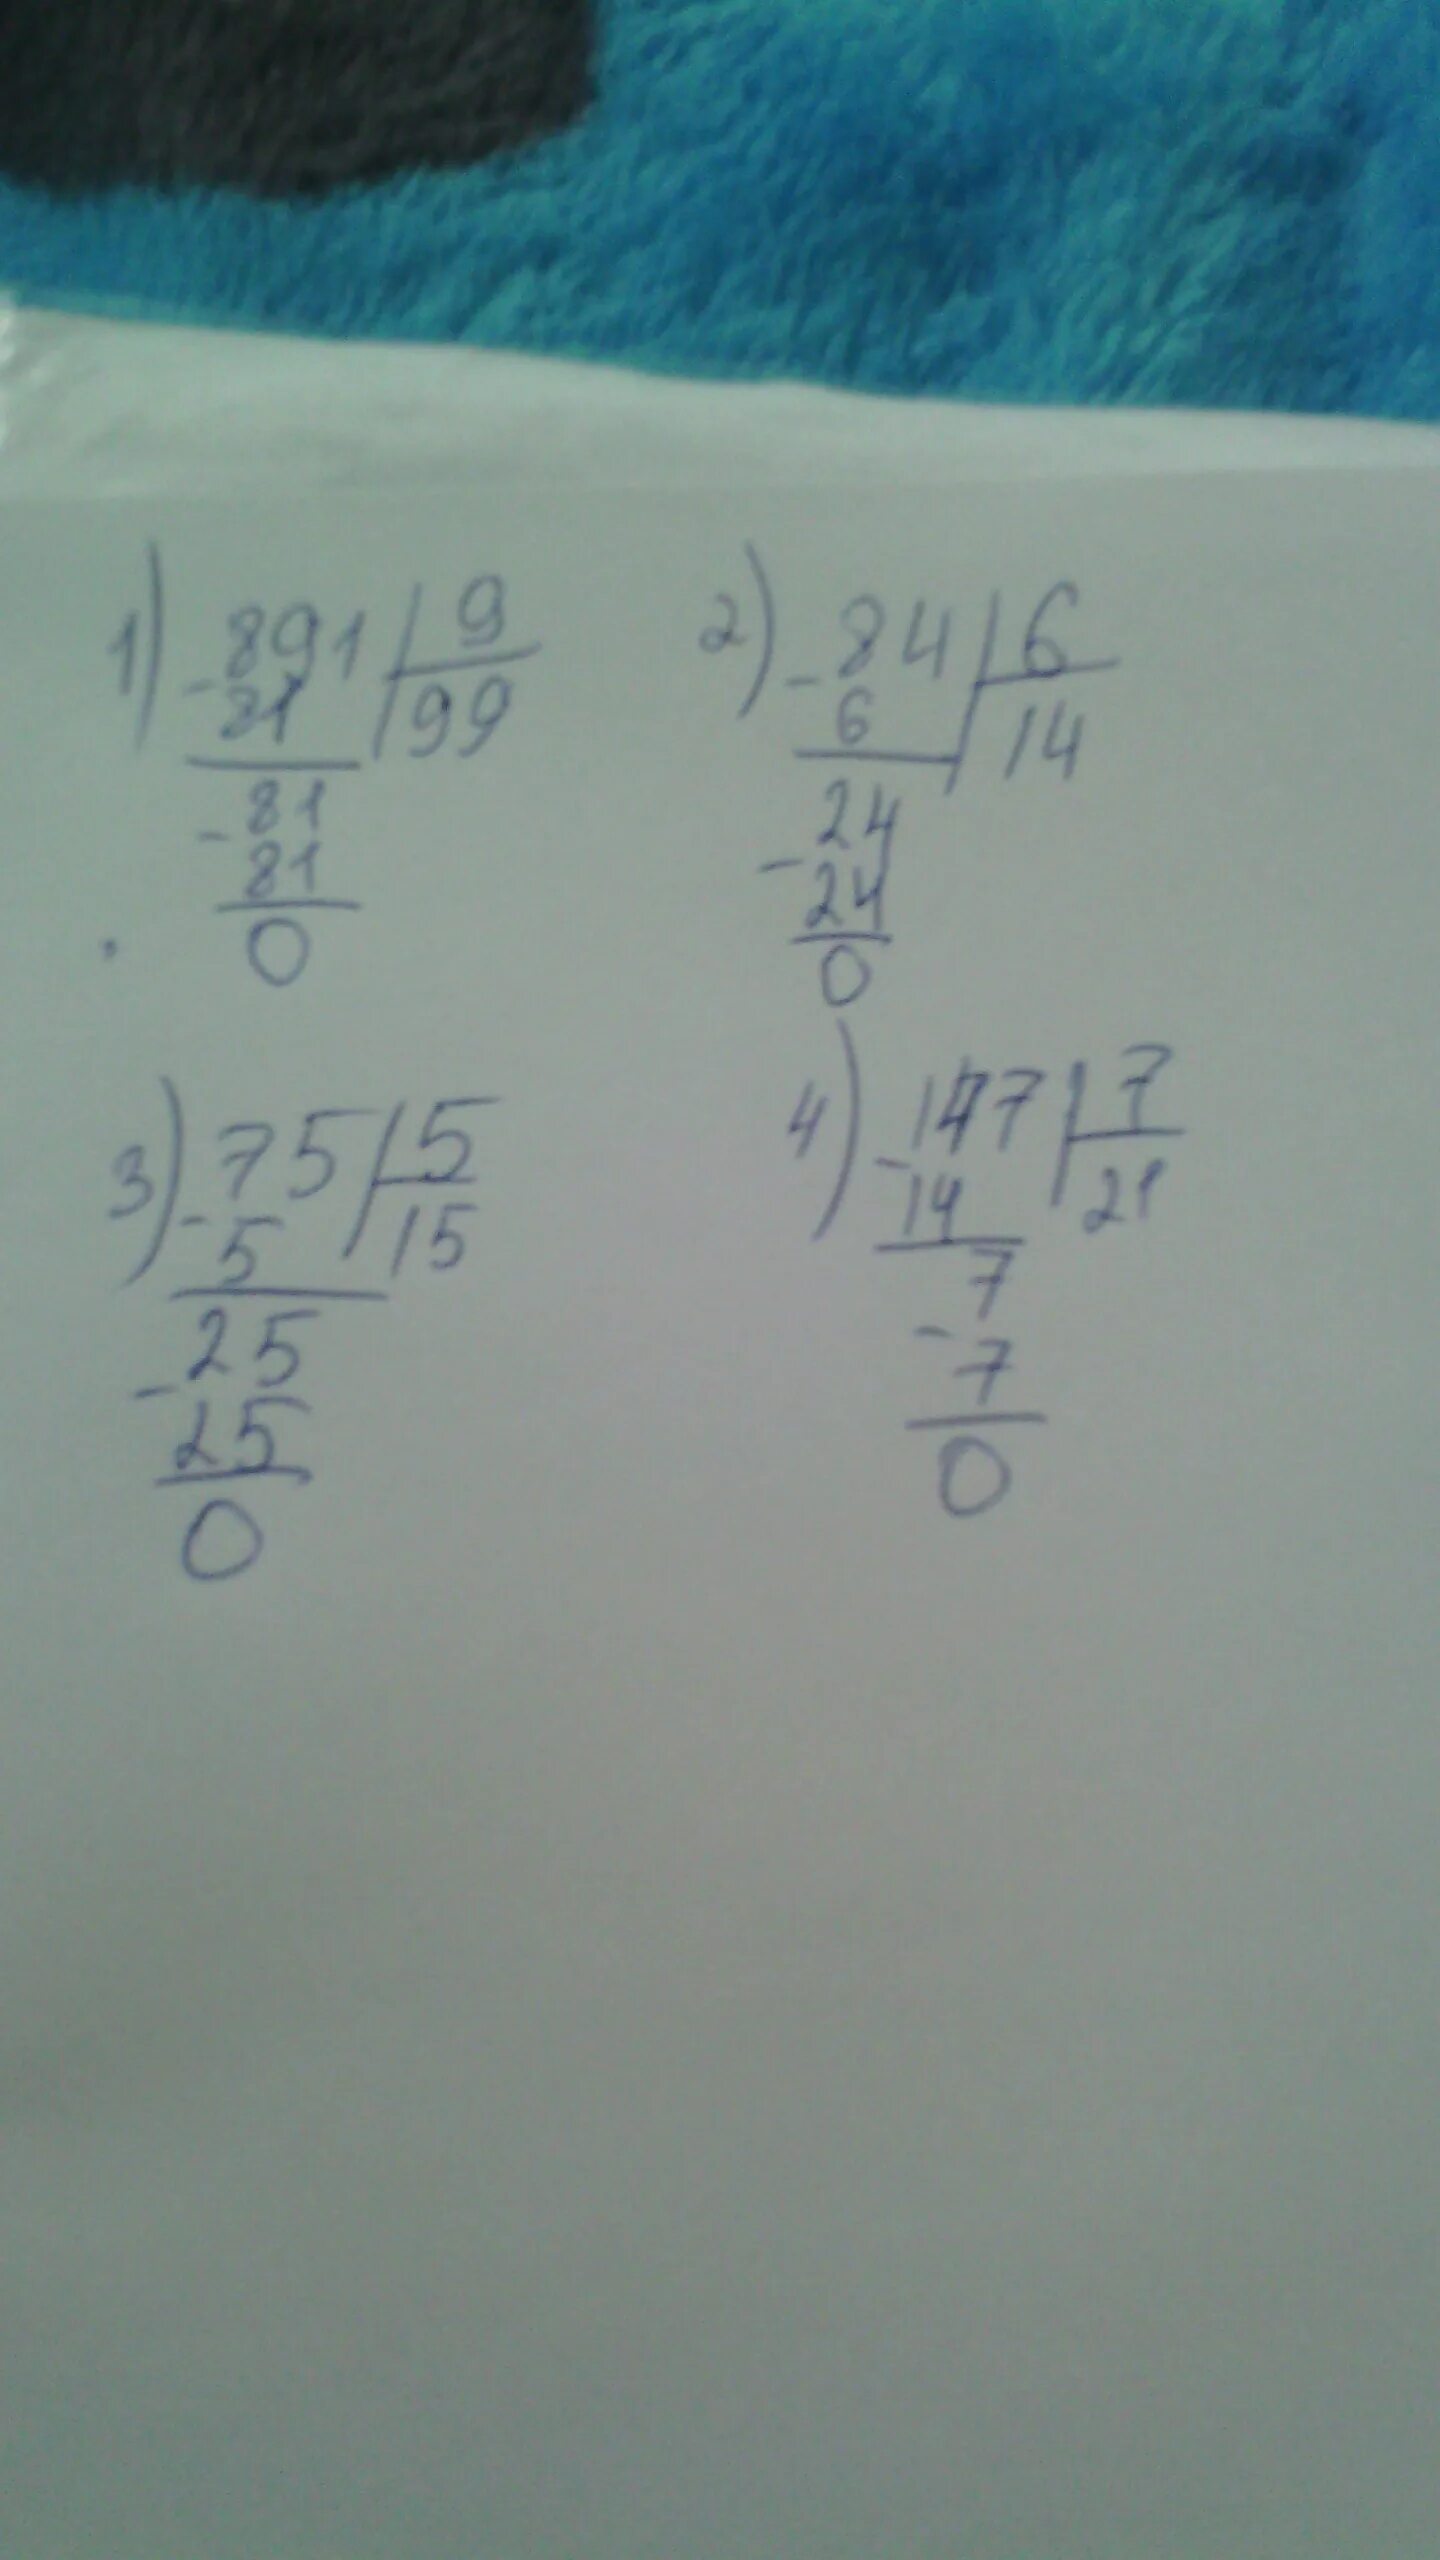 1) - 891 | 9
81 | 99
- 81
81
0
2) - 84 | 6
6 | 14
- 24
24
0
3) - 75 | 5
5 | 15
- 25
25
0
4) - 147 | 7
14 | 21
7
- 7
0